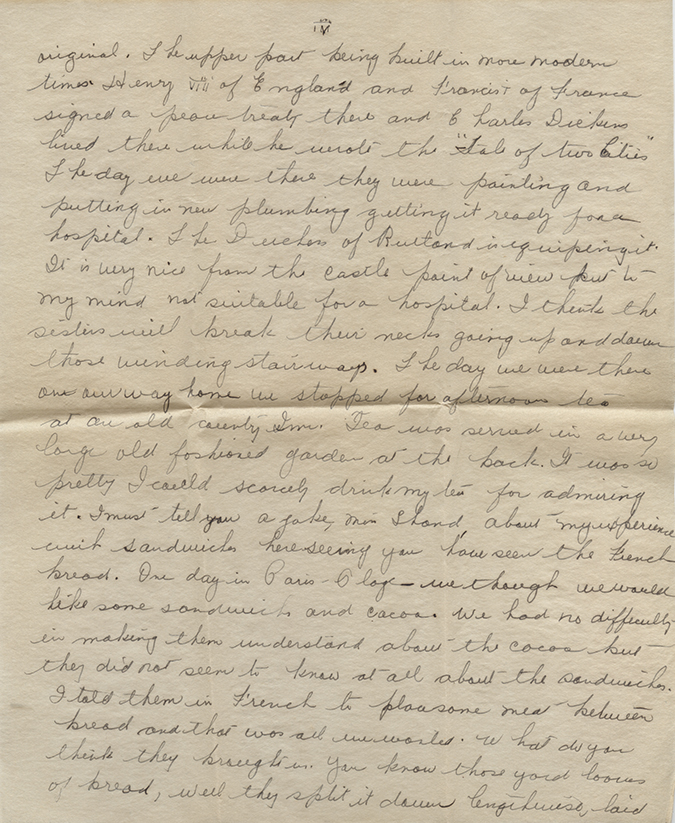 IV
original. The upper part being built in more modern
times. Henry VIII of England and Francis I of France
signed a peace treaty there and Charles Dickens
lived there while he wrote the "Tale of two Cities"
The day we were there they were painting and
putting in new plumbing getting it ready for a
hospital. The Duchess of Rutland is equiping it.
It is very nice from the castle point of view but to
my mind not suitable for a hospital. I think the
sisters will break their necks going up and down
those winding stairways. The day we were there
on our way home we stopped for afternoon tea
at an old county Inn. Tea was served in a very
large old fashioned garden at the back. It was so
pretty I could scarcely drink my tea for admiring
it. I must tell you a joke, Miss about my experience
with sandwiches here seeing you have seen the French
bread. One day in Paris Plage we though we would
like some sandwich and cocoa. We had no difficulty
in making them understand about the cocoa but
they did not seem to know at all about the sandwiches.
I told them in French to place some meat between
bread and that was all we wanted. What do you
think they brought us. You know those yard loaves
of bread, well they split it down lengthwise, laid